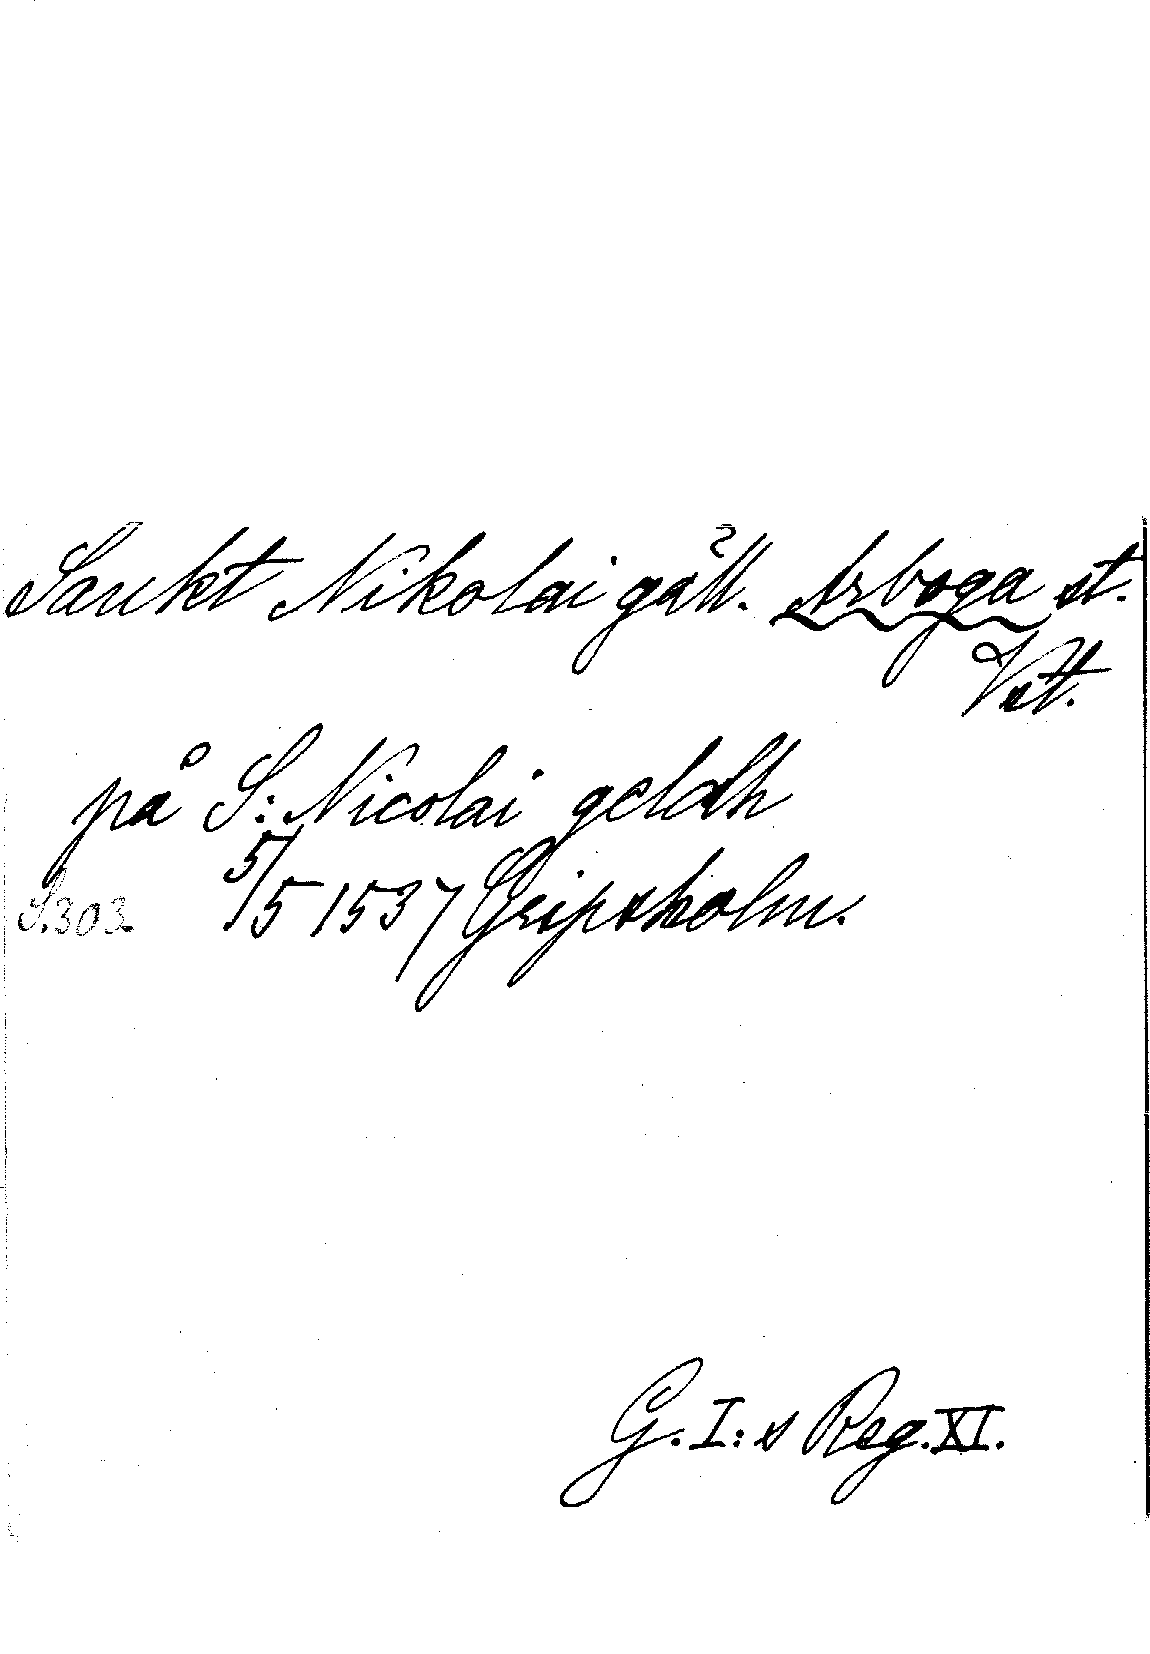 Sankt Nikolai gäll. Arboga st.
Vstt.
på S: Nicolai geldh
S. 303. 5/5 1537 Gripsholm.
G. I:s Reg. XI.